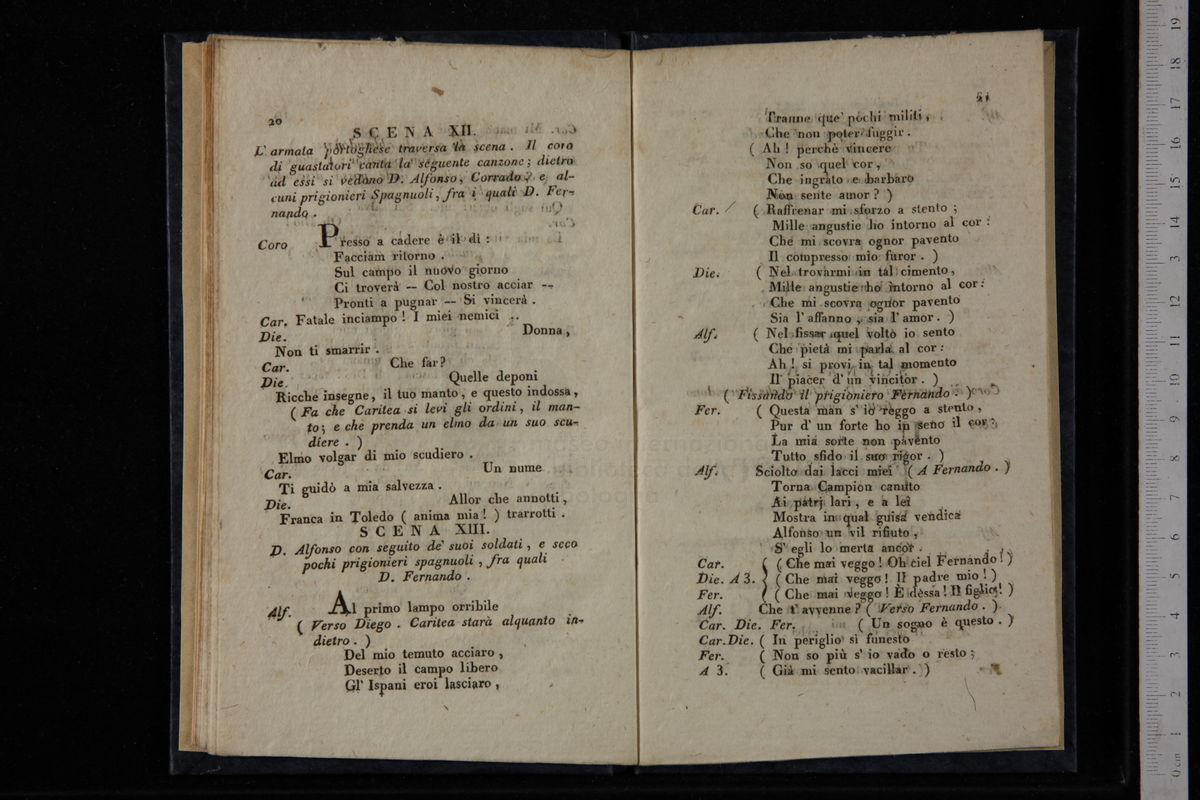 20
SCENA XII.
L' armata portoghese traversa la scena. Il coro
di guastatori canta la seguente canzone; dietro
ad essi si vedono D. Alfonso, Corrado, e al-
cuni prigionieri Spagnuoli, fra i quali D. Fer-
nando.
Coro Presso a cadere è il dì:
Facciam ritorno.
Sul campo il nuovo giorno
Ci troverà — Col nostro acciar —
Pronti a pugnar — Si vincerà.
Car. Fatale inciampo! I miei nemici ..
Die. Donna,
Non ti smarrir.
Car. Che far?
Die. Quelle deponi
Ricche insegne, il tuo manto, e questo indossa,
( Fa che Caritea si levi gli ordini, il man-
to; e che prenda un elmo da un suo scu-
diere. )
Elmo volgar di mio scudiero.
Car. Un nume
Ti guidò a mia salvezza.
Die. Allor che annotti,
Franca in Toledo ( anima mia! ) trarrotti.
SCENA XIII.
D. Alfonso con seguito de' suoi soldati, e seco
pochi prigionieri spagnuoli, fra quali
D. Fernando.
Alf. Al primo lampo orribile
( Verso Diego. Caritea starà alquanto in-
dietro. )
Del mio temuto acciaro,
Deserto il campo libero
Gl' Ispani eroi lasciaro,
21
Tranne que' pochi militi,
Che non poter fuggir.
( Ah! perchè vincere
Non so quel cor,
Che ingrato e barbaro
Non sente amor? )
Car. ( Raffrenar mi sforzo a stento;
Mille angustie ho intorno al cor:
Che mi scovra ognor pavento
Il compresso mio furor. )
Die. ( Nel trovarmi in tal cimento,
Mille angustie ho intorno al cor:
Che mi scovra ognor pavento
Sia l' affanno, sia l' amor. )
Alf. ( Nel fissar quel volto io sento
Che pietà mi parla al cor:
Ah! si provi in tal momento
Il piacer d' un vincitor. )
( Fissando il prigioniero Fernando. )
Fer. ( Questa man s' io reggo a stento,
Pur d' un forte ho in seno il cor;
La mia sorte non pavento
Tutto sfido il suo rigor. )
Alf. Sciolto dai lacci miei ( A Fernando. )
Torna Campion canuto
Ai patrj lari, e a lei
Mostra in qual guisa vendica
Alfonso un vil rifiuto,
S' egli lo merta ancor.
Car. ( Che mai veggo! Oh ciel Fernando! )
Die. A 3. ( Che mai veggo! Il padre mio! )
Fer. ( Che mai veggo! È dessa! Il figlio! )
Alf. Che t' avvenne? ( Verso Fernando. )
Car. Die. Fer. ( Un sogno è questo. )
Car. Die. ( In periglio sì funesto
Fer. ( Non so più s' io vado o resto;
A 3. ( Già mi sento vacillar. )